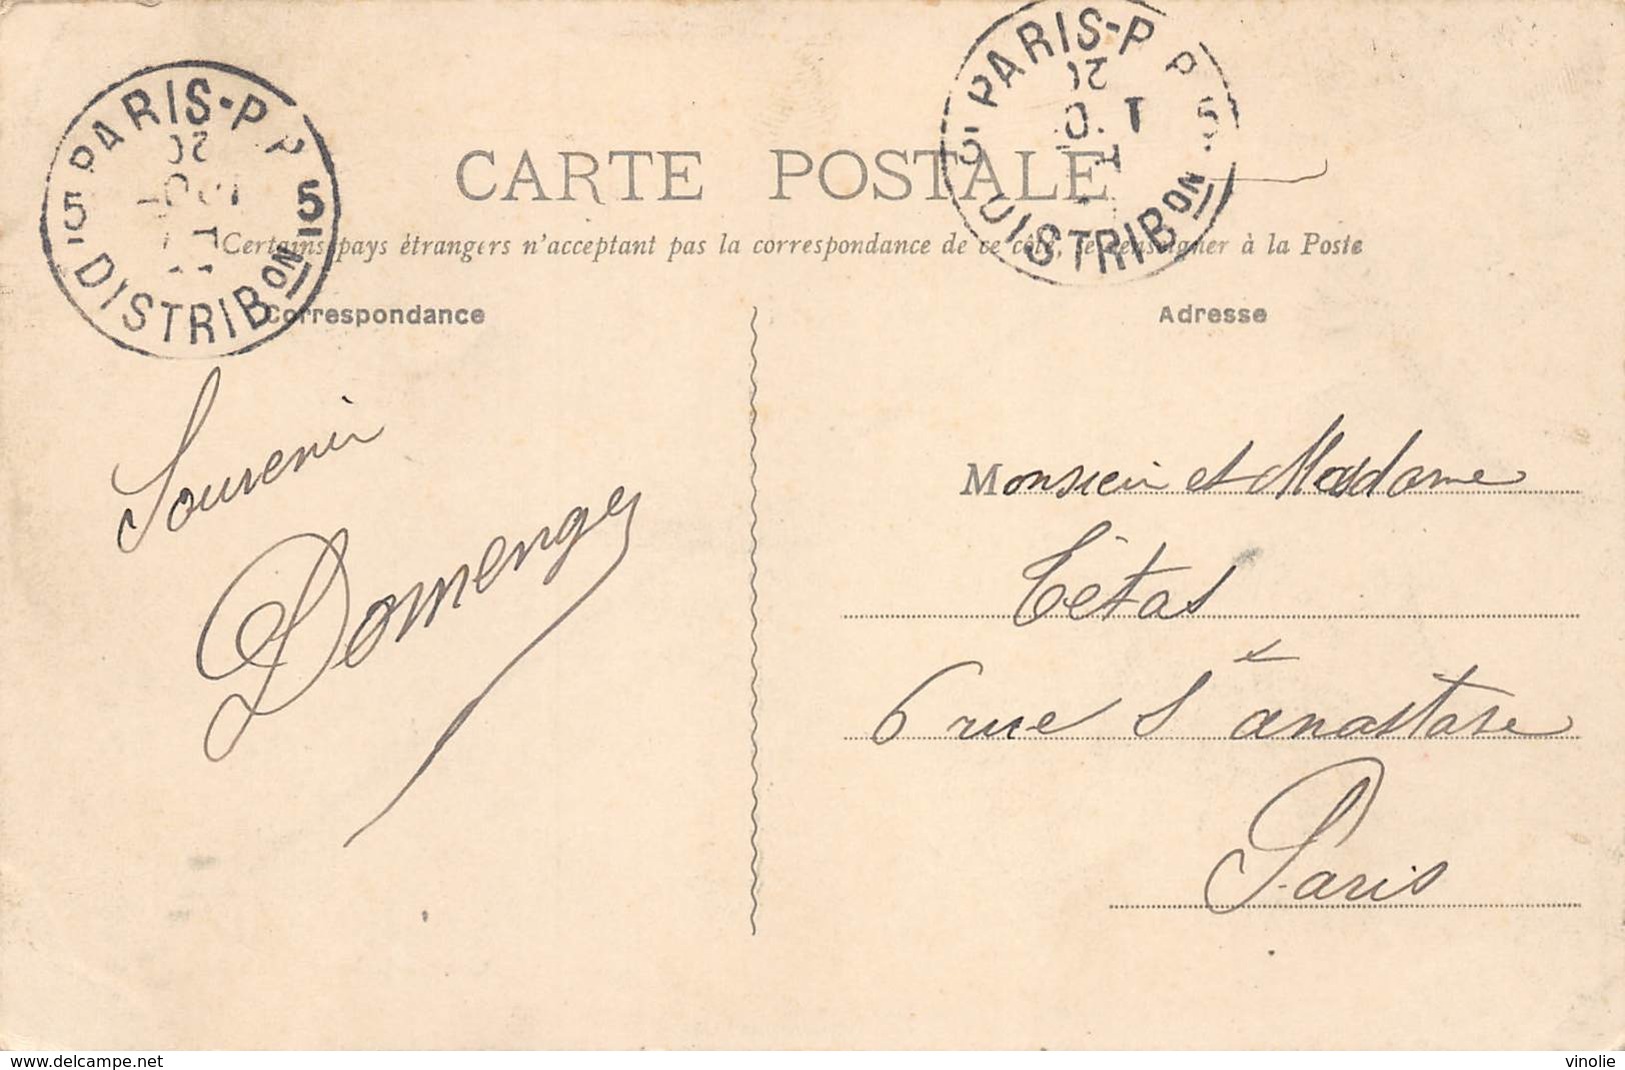 PARIS-P P
5 5
DISTRIBON
PARIS-P P
20
5 5
DISTRIBON
CARTE POSTALE
Certains pays étrangers n'acceptant pas la correspondance de ce côté, se renseigner à la Poste
Correspondance
Adresse
Souvenir
Domenge
Monsieur et Madame
Tétas
6 rue St anastase
Paris
www.delcampe.net
vinolie